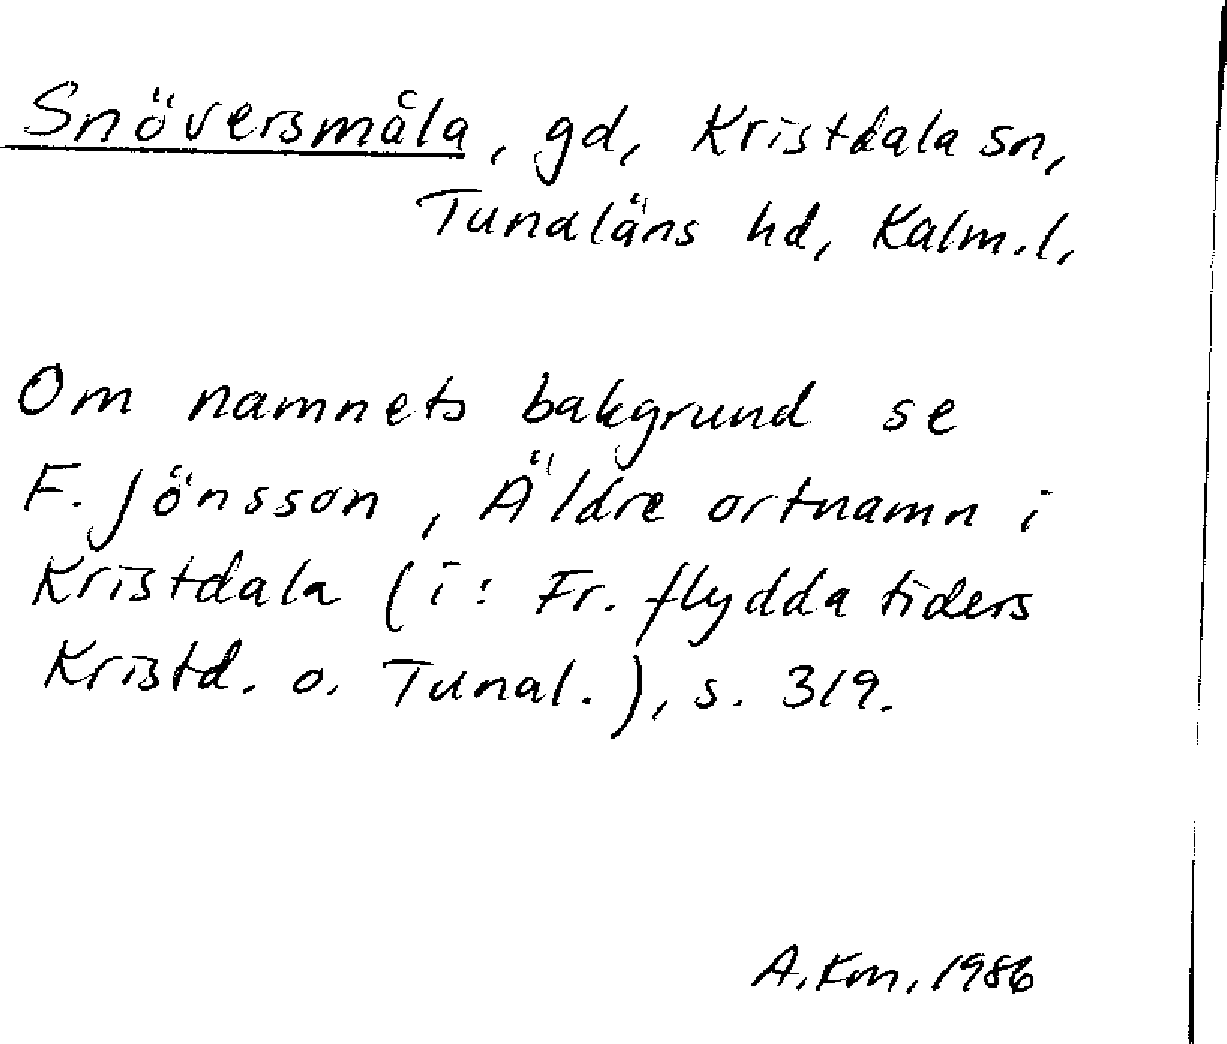 Snöversmåla, gd, Kristdala sn,
Tunaläns hd, Kalm.l.
Om namnets bakgrund se
F. Jönsson, Äldre ortnamn i
Kristdala (i: Fr. flydda tiders
Kristd. o. Tunal.), s. 319.
A.Km. 1986